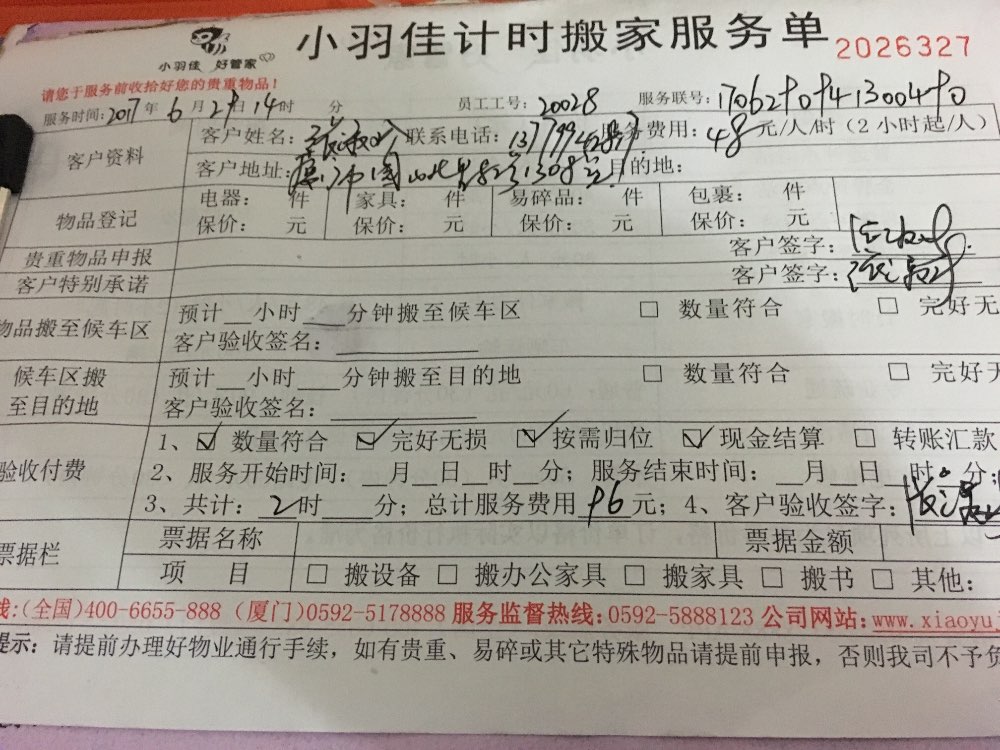 小羽佳 好管家
小羽佳计时搬家服务单 2026327
请您于服务前收拾好您的贵重物品!
服务时间: 2017 年 6 月 29 日 14 时 分 员工工号: 20028 服务联号:
客户资料 客户姓名: 联系电话: 服务费用: 48 元/人/时 (2 小时起/人)
客户地址: 目的地:
物品登记 电器: 件 家具: 件 易碎品: 件 包裹: 件
保价: 元 保价: 元 保价: 元 保价: 元
贵重物品申报 客户签字:
客户特别承诺 客户签字:
物品搬至候车区 预计__小时__分钟搬至候车区 □ 数量符合 □ 完好无
客户验收签名:
候车区搬至目的地 预计__小时__分钟搬至目的地 □ 数量符合 □ 完好无
客户验收签名:
验收付费 1、☑ 数量符合 ☑ 完好无损 ☑ 按需归位 ☑ 现金结算 □ 转账汇款
2、服务开始时间: __月__日__时__分; 服务结束时间: __月__日__时__分;
3、共计: 2 时__分; 总计服务费用 96 元; 4、客户验收签字:
票据栏 票据名称 票据金额
项 目 □ 搬设备 □ 搬办公家具 □ 搬家具 □ 搬书 □ 其他:
线:(全国)400-6655-888 (厦门)0592-5178888 服务监督热线:0592-5888123 公司网站:www.xiaoyu
提示: 请提前办理好物业通行手续，如有贵重、易碎或其它特殊物品请提前申报，否则我司不予负